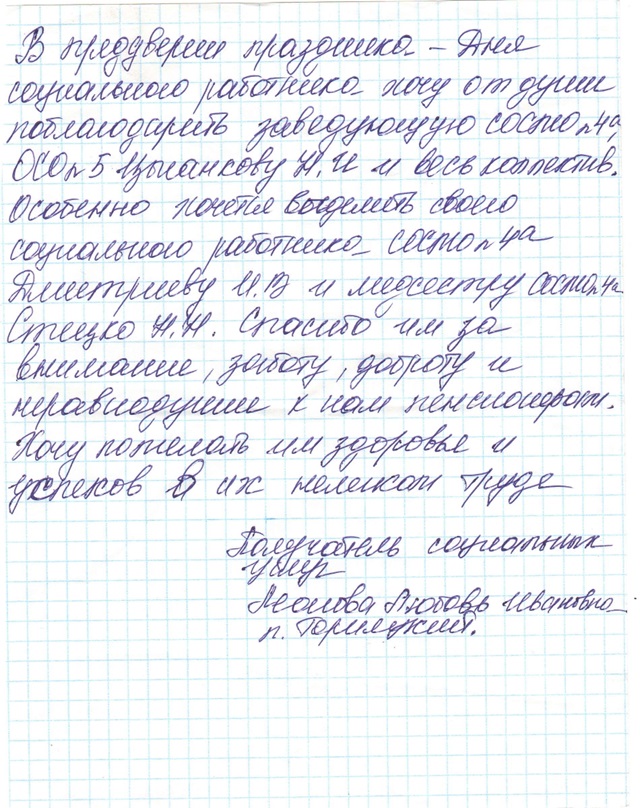 В преддверии праздника – Дня
социального работника хочу от души
поблагодарить заведующую СОСМО п 4а
ОСО п 5 Цыганкову Н.И и весь коллектив.
Особенно хочется выделить своего
социального работника СОСМО п 4а
Дмитриеву И.В и медсестру СОСМО п 4а
Стецко Н.Н. Спасибо им за
внимание, заботу, доброту и
неравнодушие к нам пенсионерам.
Хочу пожелать им здоровье и
успехов в их нелегком труде
Получатель социальных
услуг
Любовь Ивановна
п.